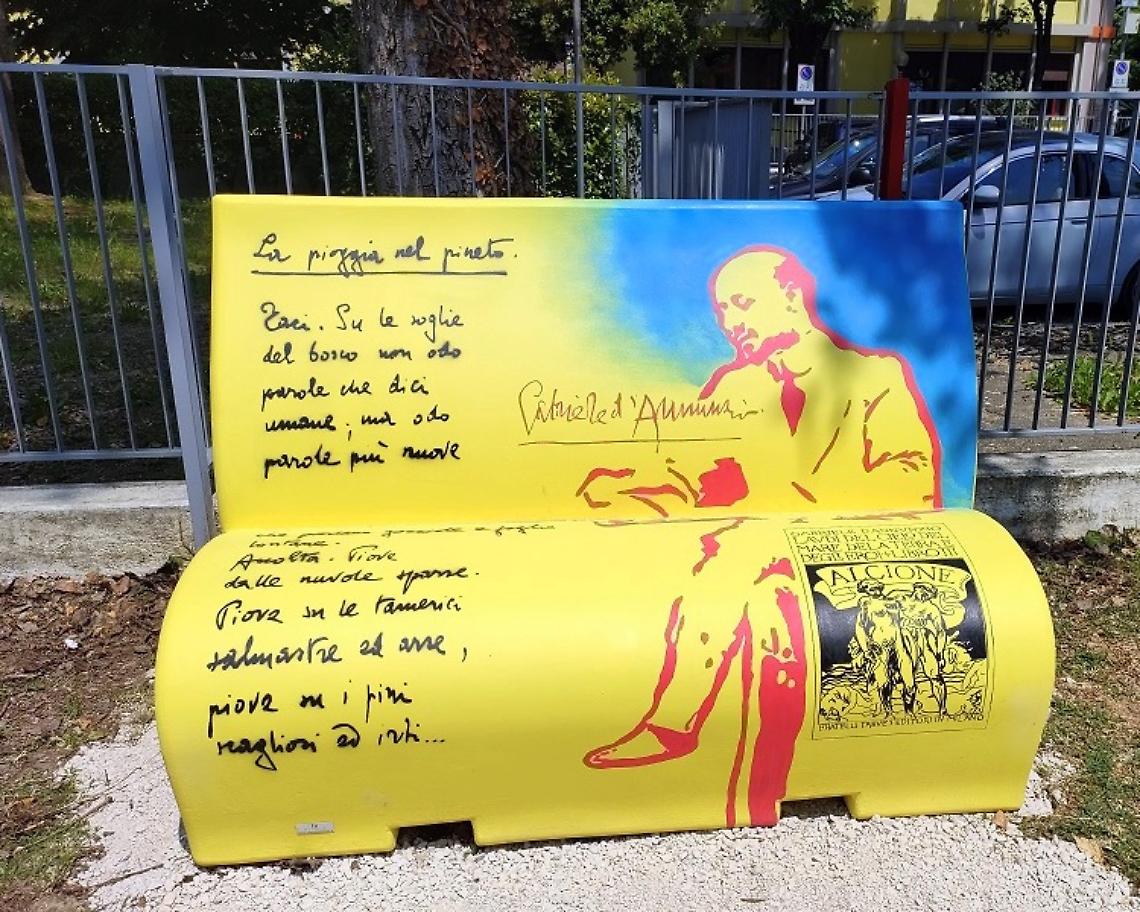 La pioggia nel pineto.
Taci. Su le soglie
del bosco non odo
parole che dici
umane; ma odo
parole più nuove
Gabriele d'Annunzio.
foglie
lontane.
Ascolta. Piove
dalle nuvole sparse.
Piove su le tamerici
salmastre ed arse,
piove su i pini
scagliosi ed irti...
GABRIELE D'ANNUNZIO
LAUDI DEL CIELO DEL
MARE DELLA TERRA E
DEGLI EROI LIBRO II
ALCIONE
FRATELLI TREVES EDITORI IN MILANO